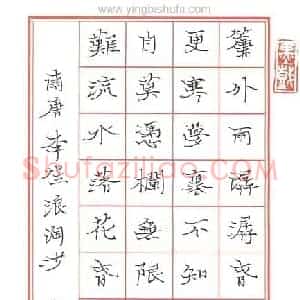 www.yingbishufa.com
簾外雨潺潺春
更寒夢裏不知
自莫憑欄無限
難流水落花春
南唐 李煜 浪淘沙
Shufaziliao.com